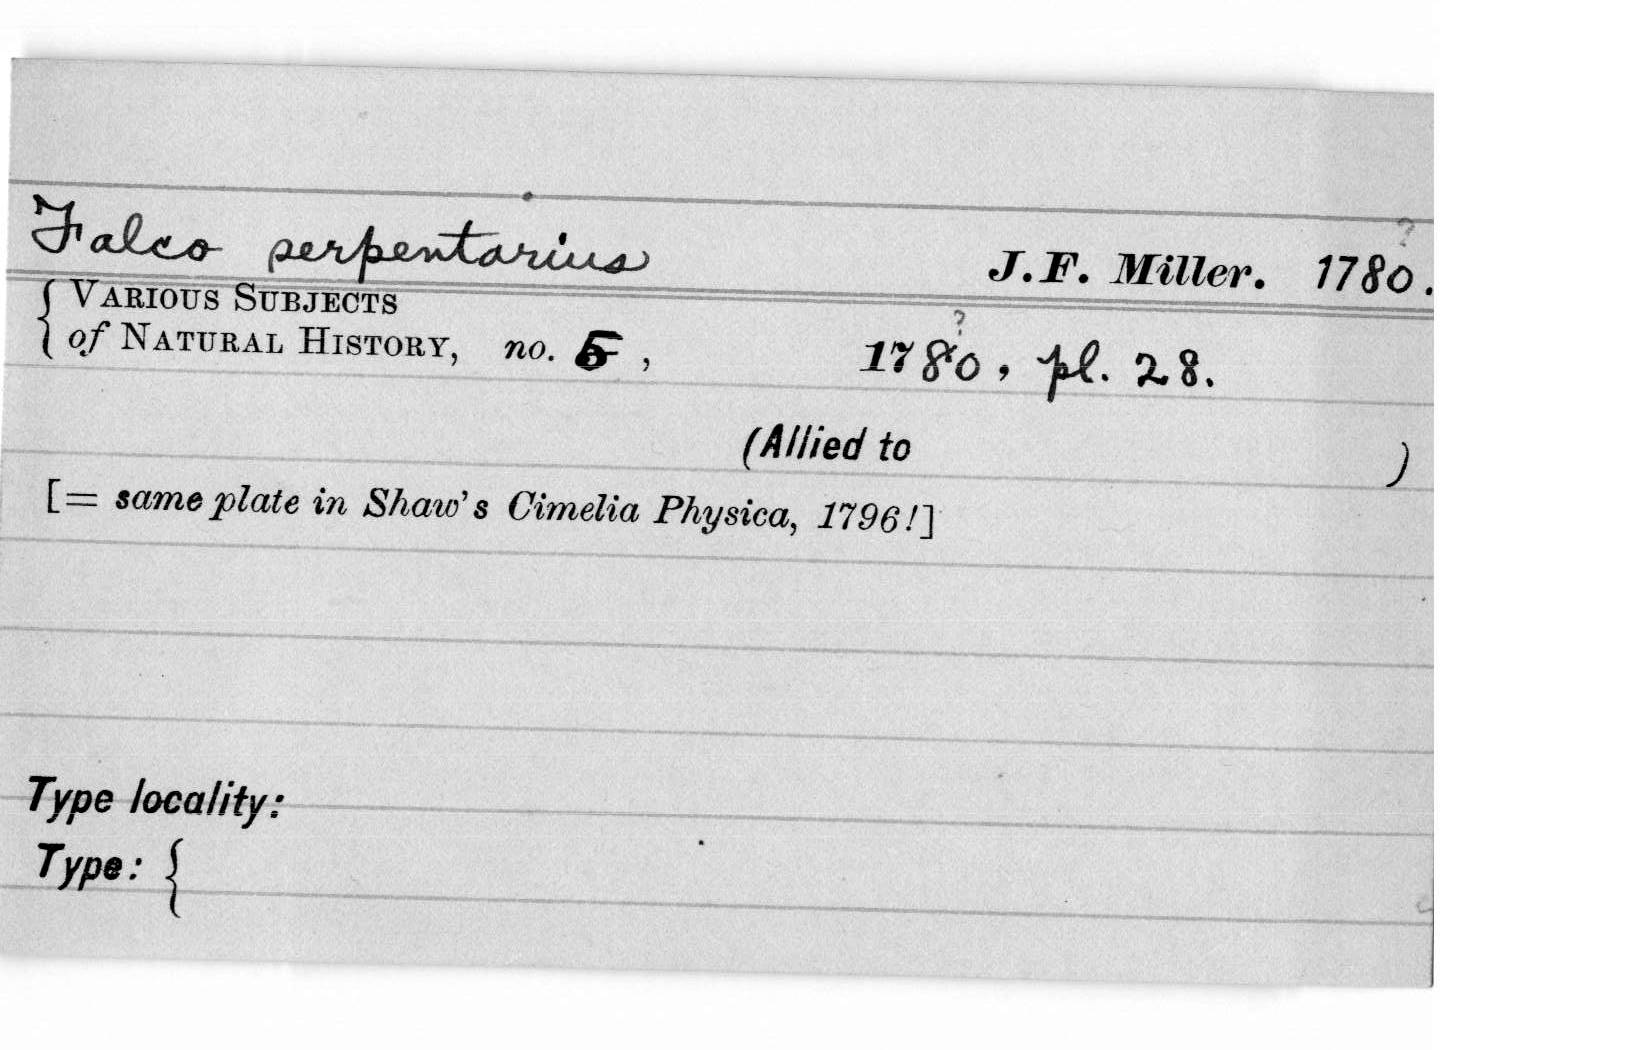 Falco serpentarius J.F. Miller. 1780?.
{ VARIOUS SUBJECTS
of NATURAL HISTORY, no. 5, 1780?, pl. 28.
(Allied to )
[= same plate in Shaw's Cimelia Physica, 1796!]
Type locality:
Type: {